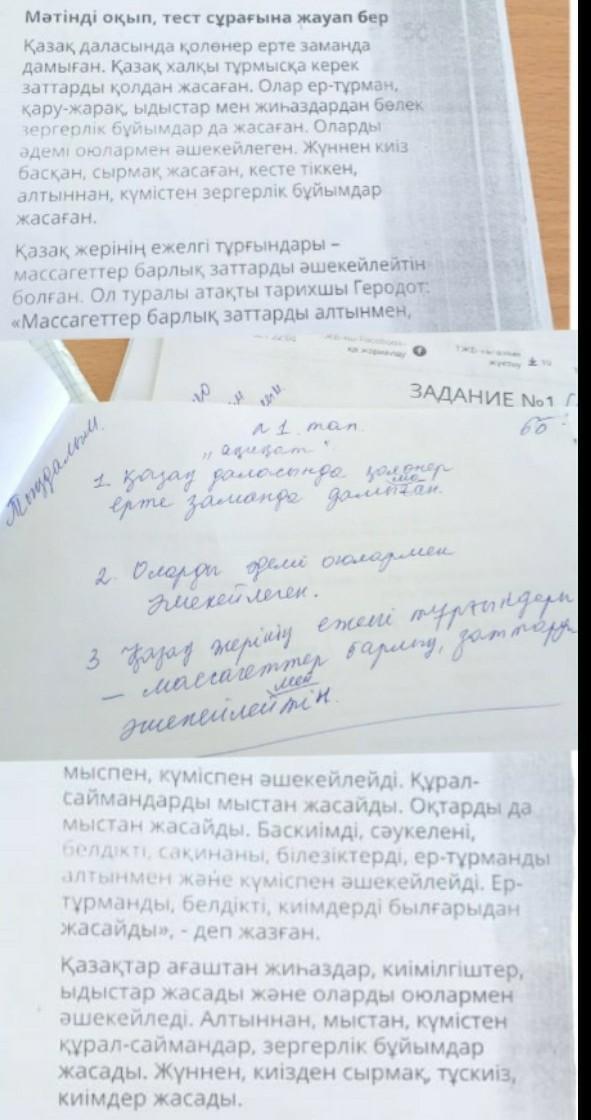 Мәтінді оқып, тест сұрағына жауап бер
Қазақ даласында қолөнер ерте заманда
дамыған. Қазақ халқы тұрмысқа керек
заттарды қолдан жасаған. Олар ер-тұрман,
қару-жарақ, ыдыстар мен жиһаздардан бөлек
зергерлік бұйымдар да жасаған. Оларды
әдемі оюлармен әшекейлеген. Жүннен киіз
басқан, сырмақ жасаған, кесте тіккен,
алтыннан, күмістен зергерлік бұйымдар
жасаған.
Қазақ жерінің ежелгі тұрғындары –
массагеттер барлық заттарды әшекейлейтін
болған. Ол туралы атақты тарихшы Геродот:
«Массагеттер барлық заттарды алтынмен,
ЗАДАНИЕ №1
Тыңдалым.
1 тап.
1. Қазақ даласында қолөнер
ерте заманда дамыған.
2. Оларды әдемі оюлармен
әшекейлеген.
3 Қазақ жерінің ежелгі тұрғындары
– массагеттер барлық заттарды
әшекейлейтін.
мыспен, күміспен әшекейлейді. Құрал-
саймандарды мыстан жасайды. Оқтарды да
мыстан жасайды. Баскиімді, сәукелені,
белдікті, сақинаны, білезіктерді, ер-тұрманды
алтынмен және күміспен әшекейлейді. Ер-
тұрманды, белдікті, киімдерді былғарыдан
жасайды», - деп жазған.
Қазақтар ағаштан жиһаздар, киімілгіштер,
ыдыстар жасады және оларды оюлармен
әшекейледі. Алтыннан, мыстан, күмістен
құрал-саймандар, зергерлік бұйымдар
жасады. Жүннен, киізден сырмақ, тұскиіз,
киімдер жасады.